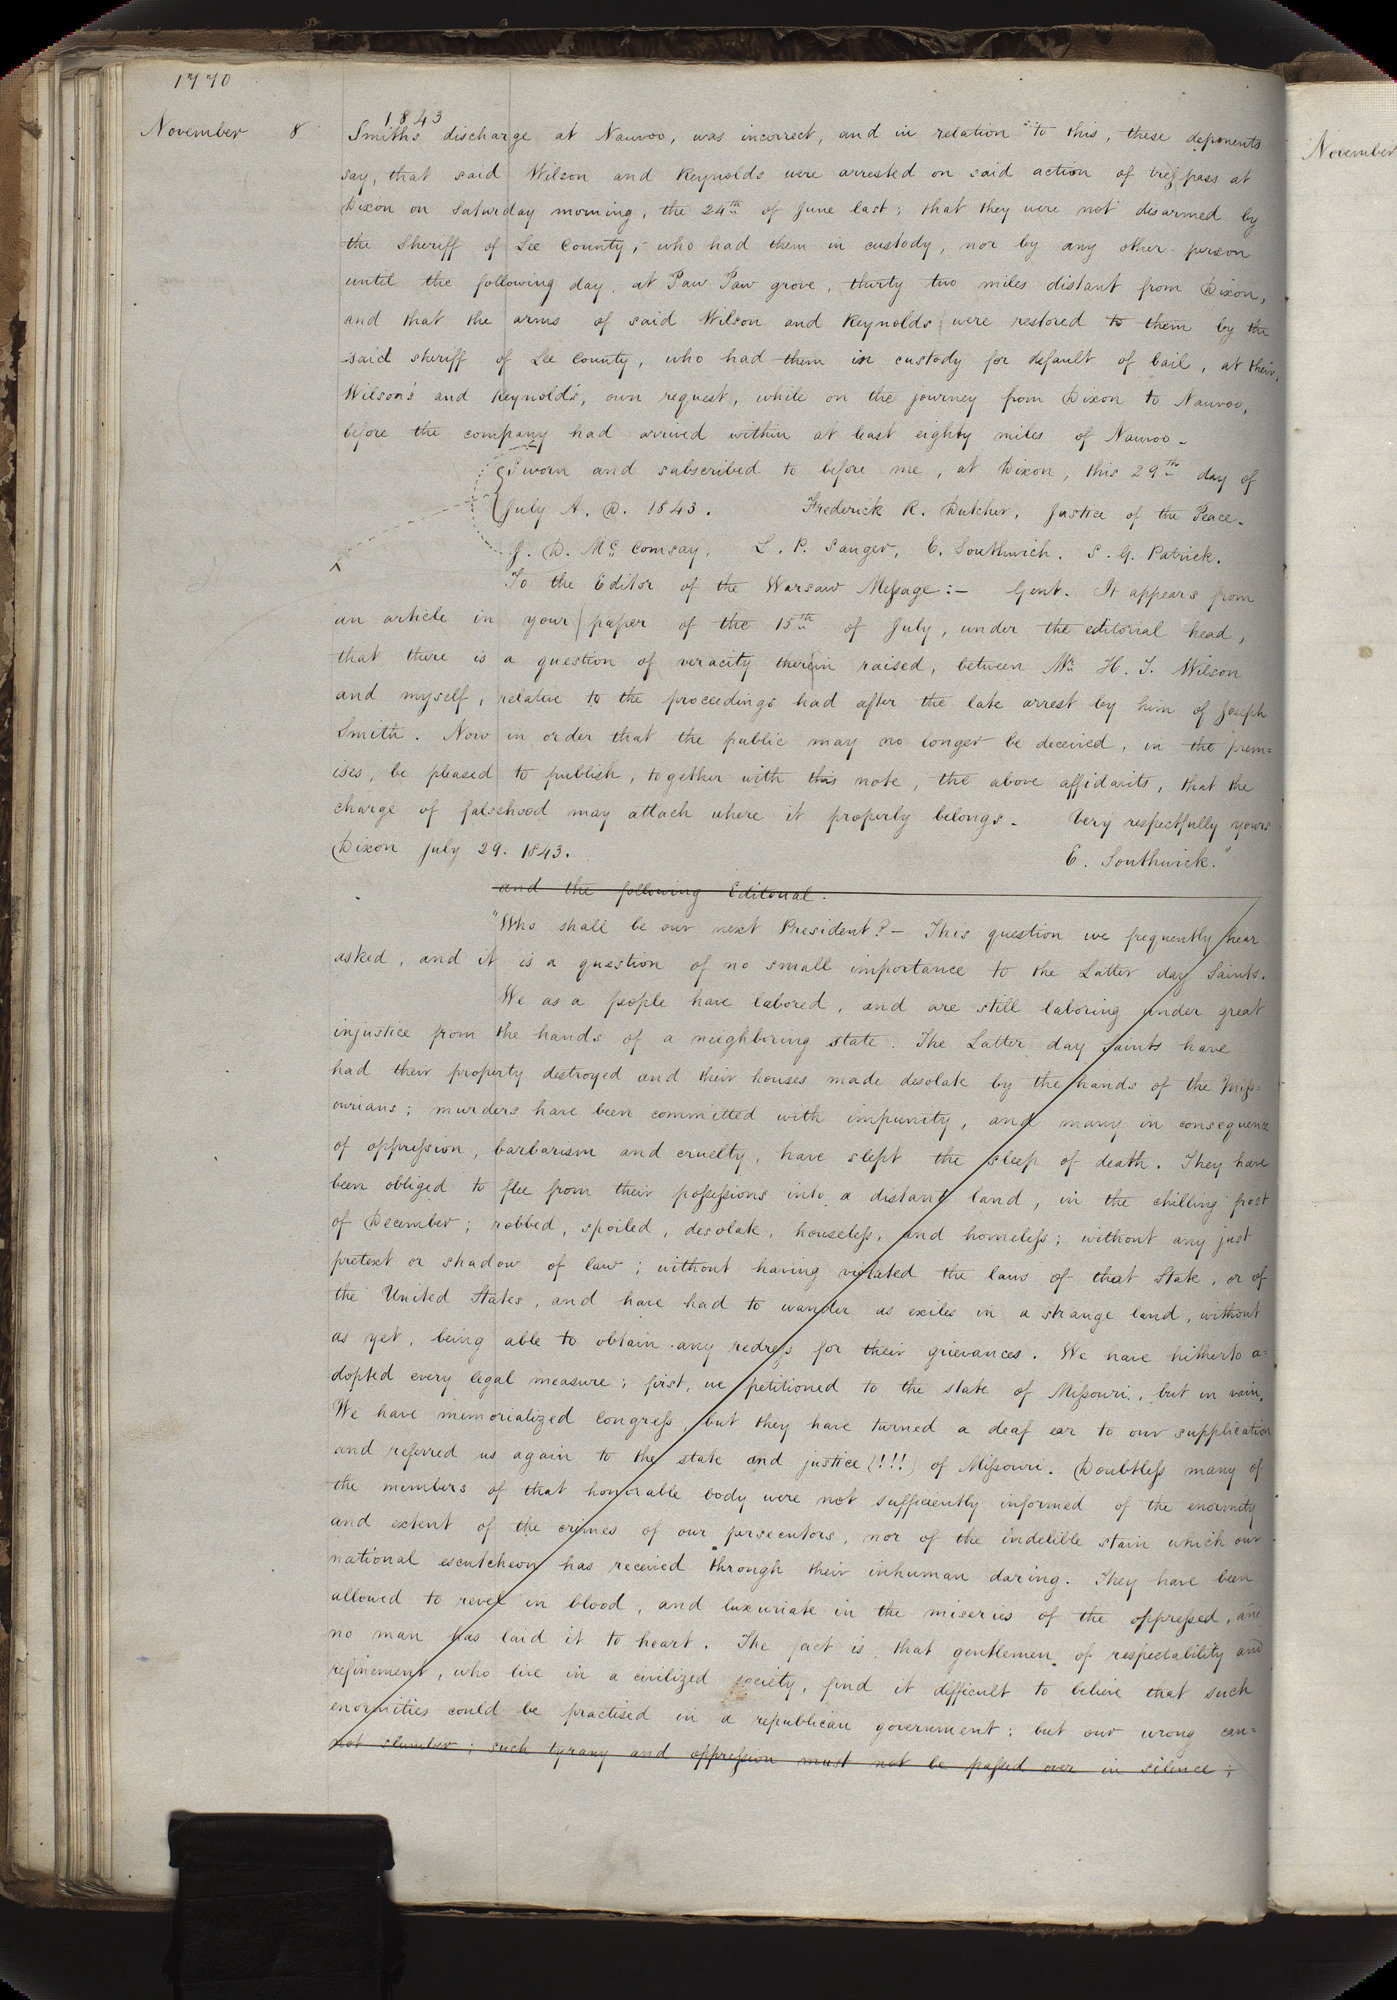 1770
1843
November 8 Smiths discharge at Nauvoo, was incorrect, and in relation to this, these deponents
say, that said Wilson and Reynolds were arrested on said action of trespass at
Dixon on Saturday morning, the 24th of June last; that they were not disarmed by
the Sheriff of Lee County, who had them in custody, nor by any other person
until the following day, at Paw Paw grove, thirty two miles distant from Dixon,
and that the arms of said Wilson and Reynolds were restored to them by the
said sheriff of Lee County, who had them in custody for default of bail, at their,
Wilson's and Reynold's, own request, while on the journey from Dixon to Nauvoo,
before the company had arrived within at least eighty miles of Nauvoo—
Sworn and subscribed to before me, at Dixon, this 29th day of
July A. D. 1843. Frederick R. Dutcher, Justice of the Peace.
J. D. Mc Comsay, L. P. Sanger, E. Southwick. S. G. Patrick.
To the Editor of the Warsaw Message:— Gent. It appears from
an article in your paper of the 15th of July, under the editorial head,
that there is a question of veracity therein raised, between Mr. H. T. Wilson
and myself, relative to the proceedings had after the late arrest by him of Joseph
Smith. Now in order that the public may no longer be deceived, in the prem=
ises, be pleased to publish, together with this note, the above affidavits, that the
charge of falsehood may attach where it properly belongs— Very respectfully yours
Dixon July 29. 1843. E. Southwick."
and the following Editorial.
"Who shall be our next President?— This question we frequently hear
asked, and it is a question of no small importance to the Latter day Saints.
We as a people have labored, and are still laboring under great
injustice from the hands of a neighboring state. The Latter day Saints have
had their property destroyed and their houses made desolate by the hands of the Miss=
ourians; murders have been committed with impunity, and many in consequence
of oppression, barbarism and cruelty, have slept the sleep of death. They have
been obliged to flee from their possessions into a distant land, in the chilling frost
of December; robbed, spoiled, desolate, houseless, and homeless; without any just
pretext or shadow of law; without having violated the laws of that State, or of
the United States, and have had to wander as exiles in a strange land, without
as yet, being able to obtain any redress for their grievances. We have hitherto a=
dopted every legal measure; first, we petitioned to the state of Missouri, but in vain.
We have memorialized Congress, but they have turned a deaf ear to our supplication
and referred us again to the state and justice (!!!) of Missouri. Doubtless many of
the members of that honorable body were not sufficiently informed of the enormity
and extent of the crimes of our persecutors, nor of the indelible stain which our
national escutcheon has received through their inhuman daring. They have been
allowed to revel in blood, and luxuriate in the miseries of the oppressed, and
no man has laid it to heart. The fact is, that gentlemen of respectability and
refinement, who live in a civilized society, find it difficult to believe that such
enormities could be practised in a republican government; but our wrong can=
not slumber; such tyrany and oppression must not be passed over in silence;
November